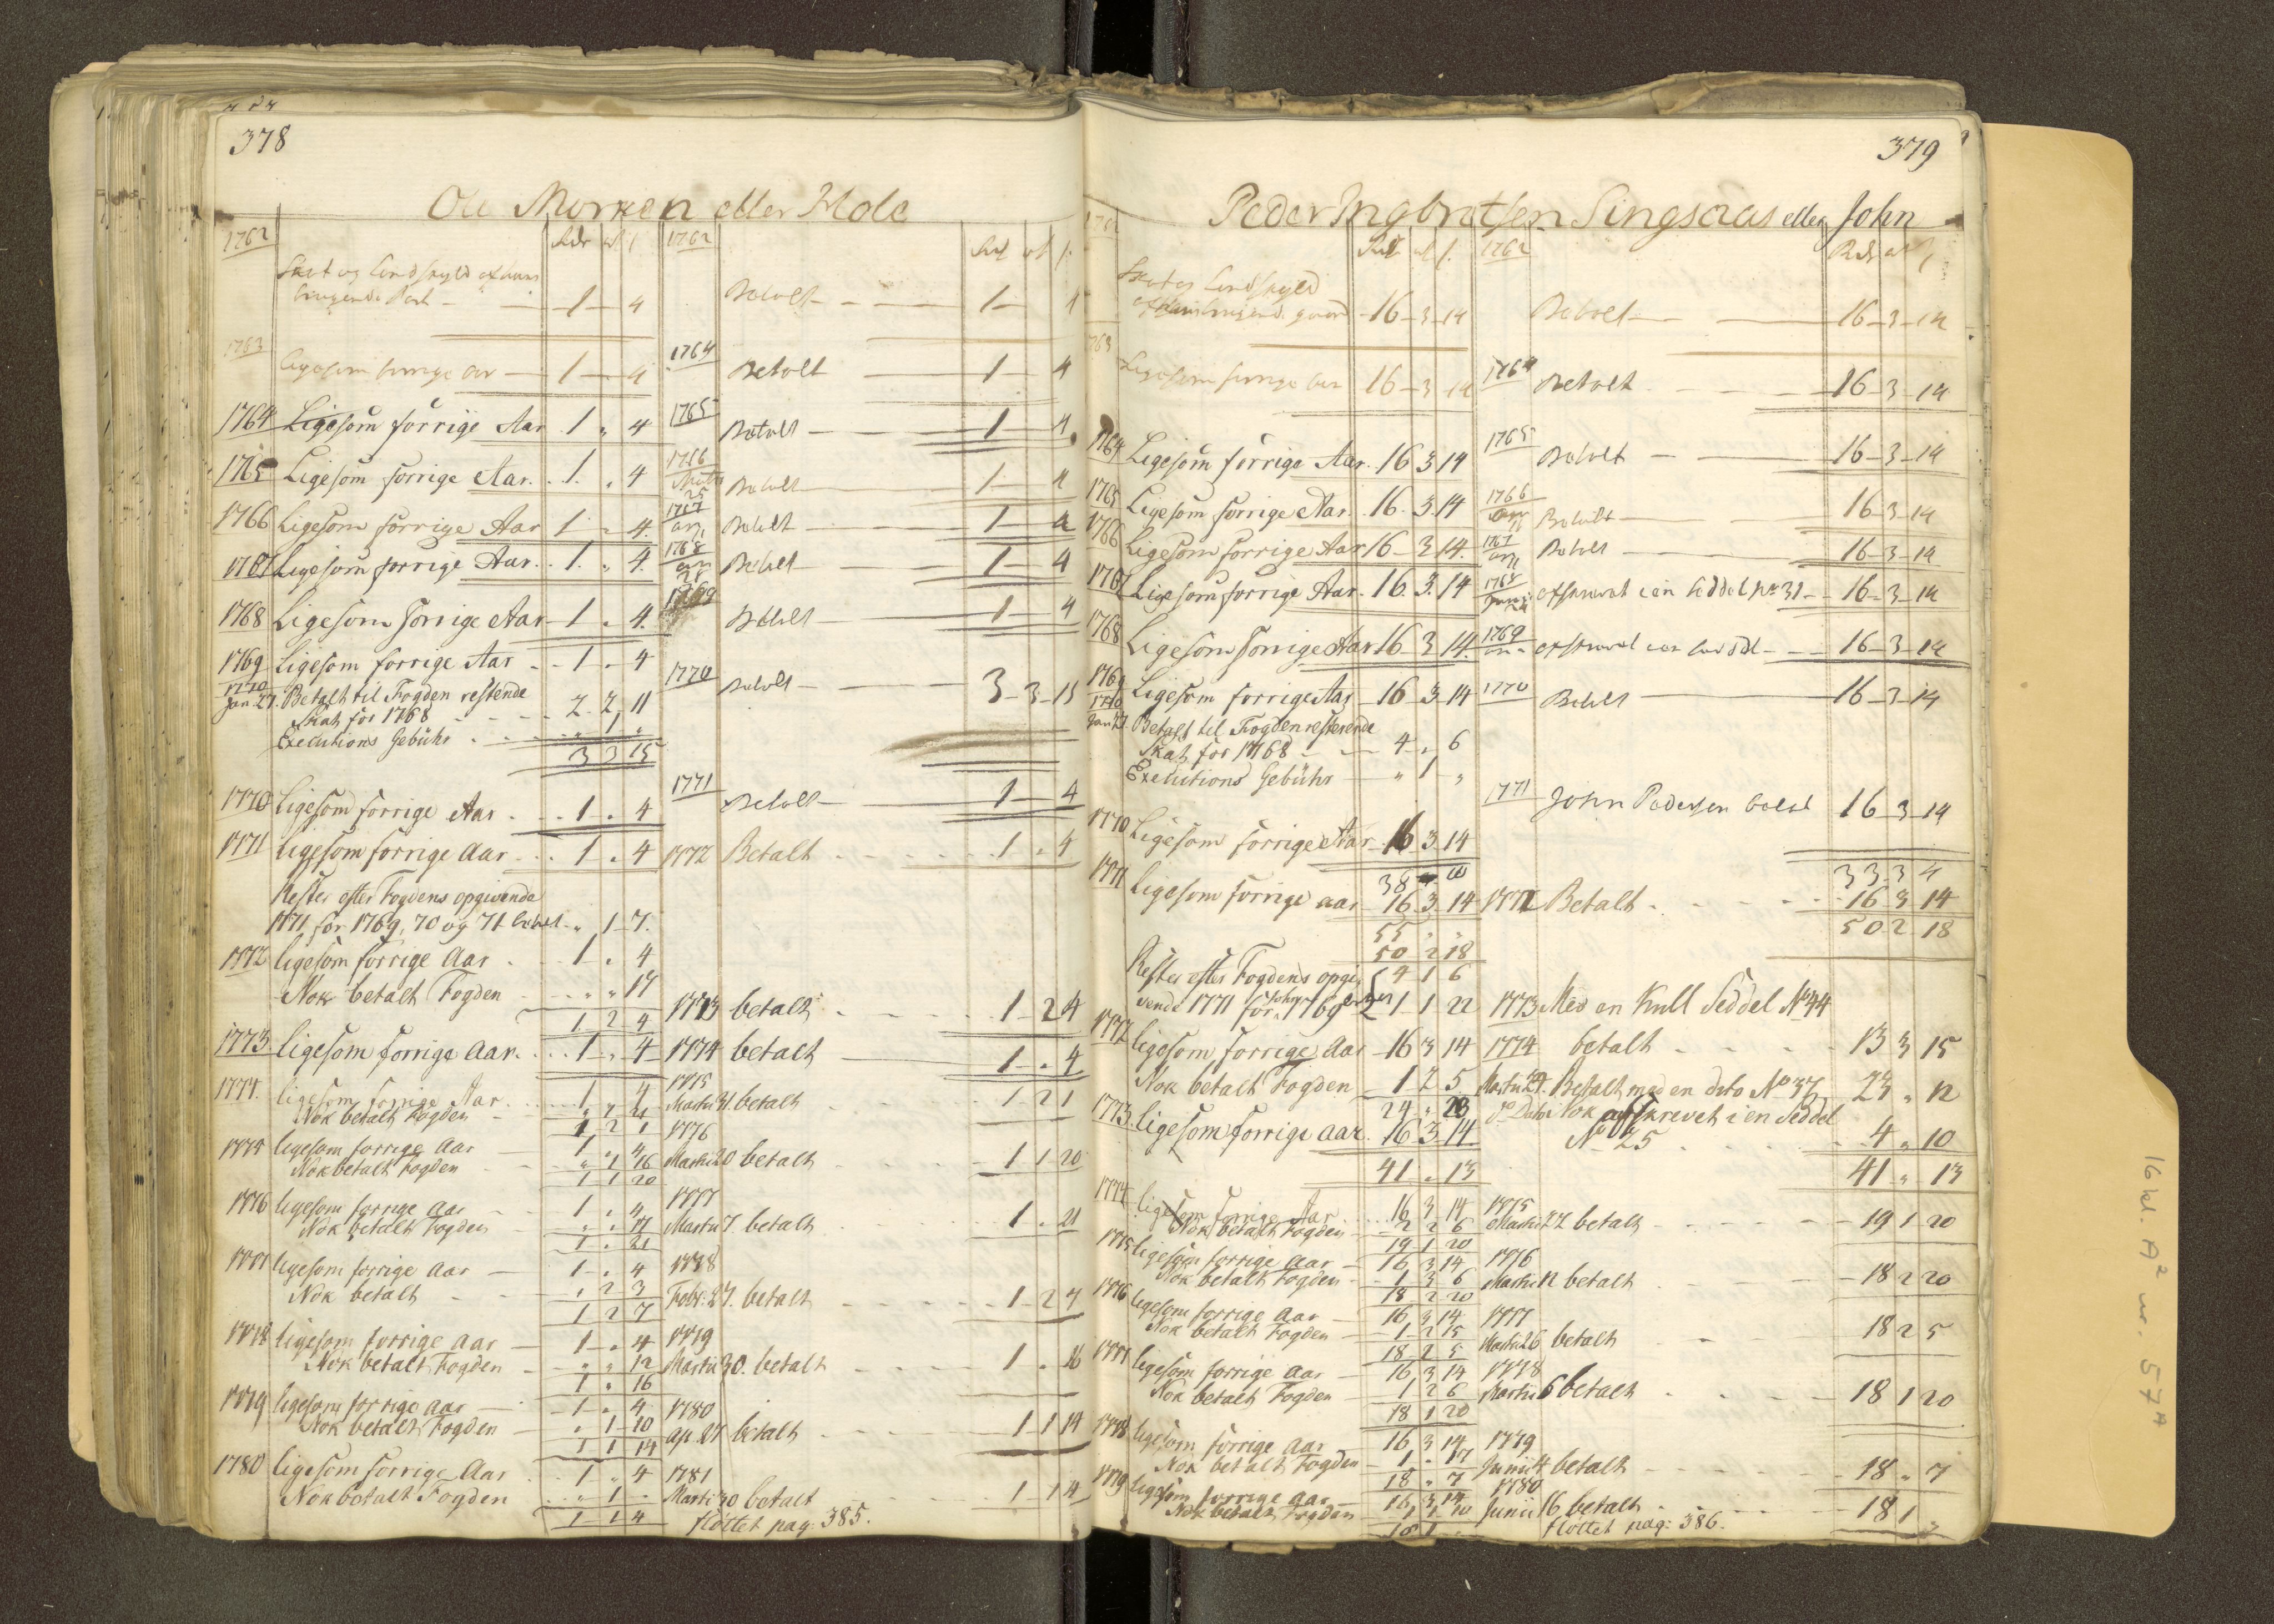 378
Ole Morken eller Hole
1762 Rdr ort s 1762 Rdr ort s
Skat og landskyld af hans
brugende Part 1 - 4 Betalt 1 - 4
1763 ligesom forrige aar 1 - 4 1764 Betalt 1 - 4
1764 Ligesom forrige Aar 1 " 4 1765 Betalt 1 - 4
1765 Ligesom forrige Aar 1 " 4 1766 25 Betalt 1 - 4
1766 Ligesom forrige Aar 1 " 4 1767 Betalt 1 - 4
1767 Ligesom forrige Aar 1 " 4 1768 28 Betalt 1 - 4
1768 Ligesom forrige Aar 1 " 4 1769 Betalt 1 - 4
1769 Ligesom forrige Aar 1 " 4 1770 Betalt 3 - 3 - 15
1770 Jan. 27. Betalt til Fogden restende
Skat for 1768 2 2 11
Executions Gebühr " 1 "
3 3 15
1770 Ligesom forrige Aar 1 " 4 1771 Betalt 1 - 4
1771 ligesom forrige Aar 1 " 4 1772 Betalt 1 " 4
Rester efter Fogdens opgivende
1771 for 1769, 70 og 71 betalt " 1 7
1772 ligesom forrige Aar 1 " 4
Nok betalt Fogden " " 17
1 2 4 1773 betalt 1 2 4
1773. ligesom forrige Aar 1 " 4 1774 betalt 1 " 4
1774. ligesom forrige Aar 1 " 4 1775
Nok betalt Fogden " 1 21 Martii 31 betalt 1 2 1
1 2 1
1775 ligesom forrige Aar 1 " 4 1776
Nok betalt Fogden " 1 16 Martii 20 betalt 1 1 20
1 1 20
1776 ligesom forrige Aar 1 " 4 1777
Nok betalt Fogden " " 17 Martii 7. betalt 1 " 21
1 " 21
1777 ligesom forrige Aar 1 " 4 1778
Nok betalt " 2 3 Febr: 27. betalt 1 2 7
1 2 7
1778 ligesom forrige Aar 1 " 4 1779
Nok betalt Fogden " " 12 Martii 30. betalt 1 " 16
1 " 16
1779 ligesom forrige Aar 1 " 4 1780
Nok betalt Fogden " 1 10 Ap. 27 betalt 1 1 14
1 1 14
1780 ligesom forrige Aar 1 " 4 1781
Nok betalt Fogden " 1 " Martii 30 betalt 1 1 4
1 1 4 flottet pag: 385.
379
Peder Ingbretsen Singsaas eller John
1762 Rdr ort s 1762 Rdr ort s
Skat og landskyld
af hans brugende gaard 16 - 3 - 14 Betalt 16 - 3 - 14
1763 Ligesom forrige aar 16 - 3 14 1764 Betalt 16 - 3 - 14
1764 Ligesom forrige Aar 16 3 14 1765 Betalt 16 - 3 - 14
1765 Ligesom forrige Aar 16 3 14 1766 Betalt 16 - 3 - 14
1766 Ligesom forrige Aar 16 - 3 14 1767 Betalt 16 - 3 - 14
1767 Ligesom forrige Aar 16 3 14 1768 afskrevet i en Seddel No 31 16 - 3 - 14
1768 Ligesom forrige Aar 16 3 14 1769 afskrevet i en Seddel 16 - 3 - 14
1769 Ligesom forrige Aar 16 3 14 1770 Betalt 16 - 3 - 14
1770 Jan 27 Betalt til Fogden resterende
Skat for 1768 4 " 6
Executions Gebühr " 1 "
1771 John Pedersen betalt 16 - 3 - 14
1770 Ligesom forrige Aar 16 3 14
38 " 10 33 3 4
1771 Ligesom forrige aar 16 3 14 1772 Betalt 16 3 14
55 " " 50 2 18
50 2 18
Rester efter Fogdens opgi- 4 1 6
vende 1771 for 1769 1 1 22 1773 Med en Kull Seddel No 44
1772 ligesom forrige Aar 16 3 14 1774 betalt 13 3 15
Nok betalt Fogden 1 2 5 Martii 29. Betalt med en dito No 37 23 " 12
24 " 23 Nok afskrevet i en Seddel
1773. ligesom forrige aar. 16 3 14 No 25 4 " 10
41 " 13 41 " 13
1774 ligesom forrige Aar 16 3 14 1775
Nok betalt Fogden 2 2 6 Martii 22 betalt 19 1 20
19 1 20
1775 ligesom forrige Aar 16 3 14 1776
Nok betalt Fogden 1 3 6 Martii 12 betalt 18 2 20
18 2 20
1776 ligesom forrige Aar 16 3 14 1777
Nok betalt Fogden 1 2 15 Martii 26 betalt 18 2 5
18 2 5
1777 ligesom forrige Aar 16 3 14 1778
Nok betalt Fogden 1 2 6 Martii 6 betalt 18 1 20
18 1 20
1778 ligesom forrige Aar 16 3 14 1779
Nok betalt Fogden 1 " 17 Junii 4 betalt 18 " 7
18 " 7 1780
1779 ligesom forrige aar 16 3 14 Junii 16 betalt 18 1 "
Nok betalt Fogden 1 1 10 flottet pag: 386.
18 1 "
16 kl. A² nr. 57ª